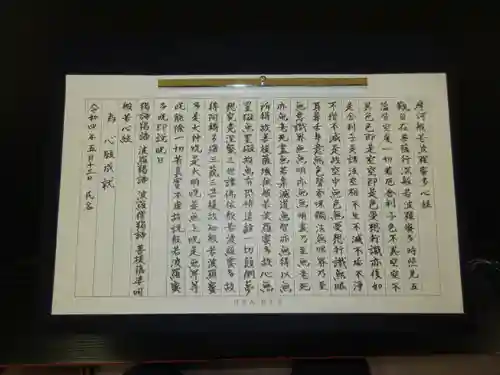 摩訶般若波羅蜜多心経
観自在菩薩行深般若波羅蜜多時照見五
蘊皆空度一切苦厄舎利子色不異空空不
異色色即是空空即是色受想行識亦復如
是舎利子是諸法空相不生不滅不垢不浄
不増不減是故空中無色無受想行識無眼
耳鼻舌身意無色声香味触法無眼界乃至
無意識界無無明亦無無明尽乃至無老死
亦無老死尽無苦集滅道無智亦無得以無
所得故菩提薩埵依般若波羅蜜多故心無
罣礙無罣礙故無有恐怖遠離一切顛倒夢
想究竟涅槃三世諸仏依般若波羅蜜多故
得阿耨多羅三藐三菩提故知般若波羅蜜
多是大神呪是大明呪是無上呪是無等等
呪能除一切苦真実不虚故説般若波羅蜜
多呪即説呪曰
羯諦羯諦 波羅羯諦 波羅僧羯諦 菩提薩婆訶
般若心経
為 心願成就
令和四年五月十三日 氏名